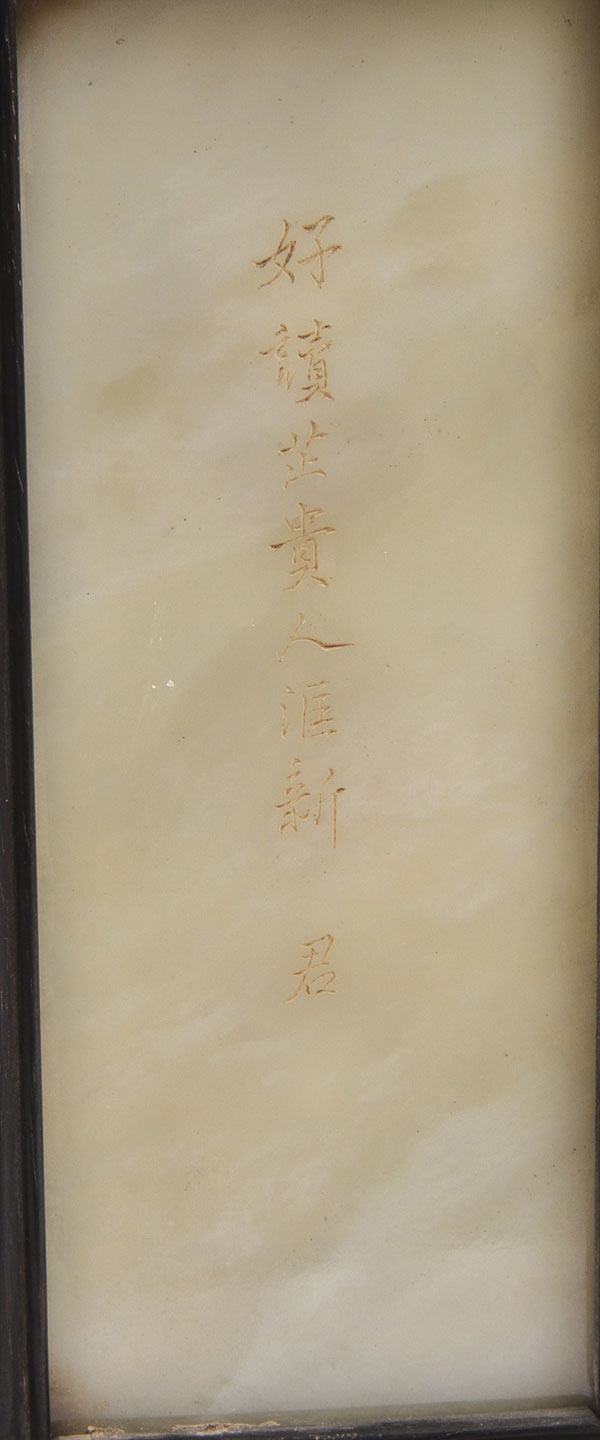 好讀芷貴人滙新 君